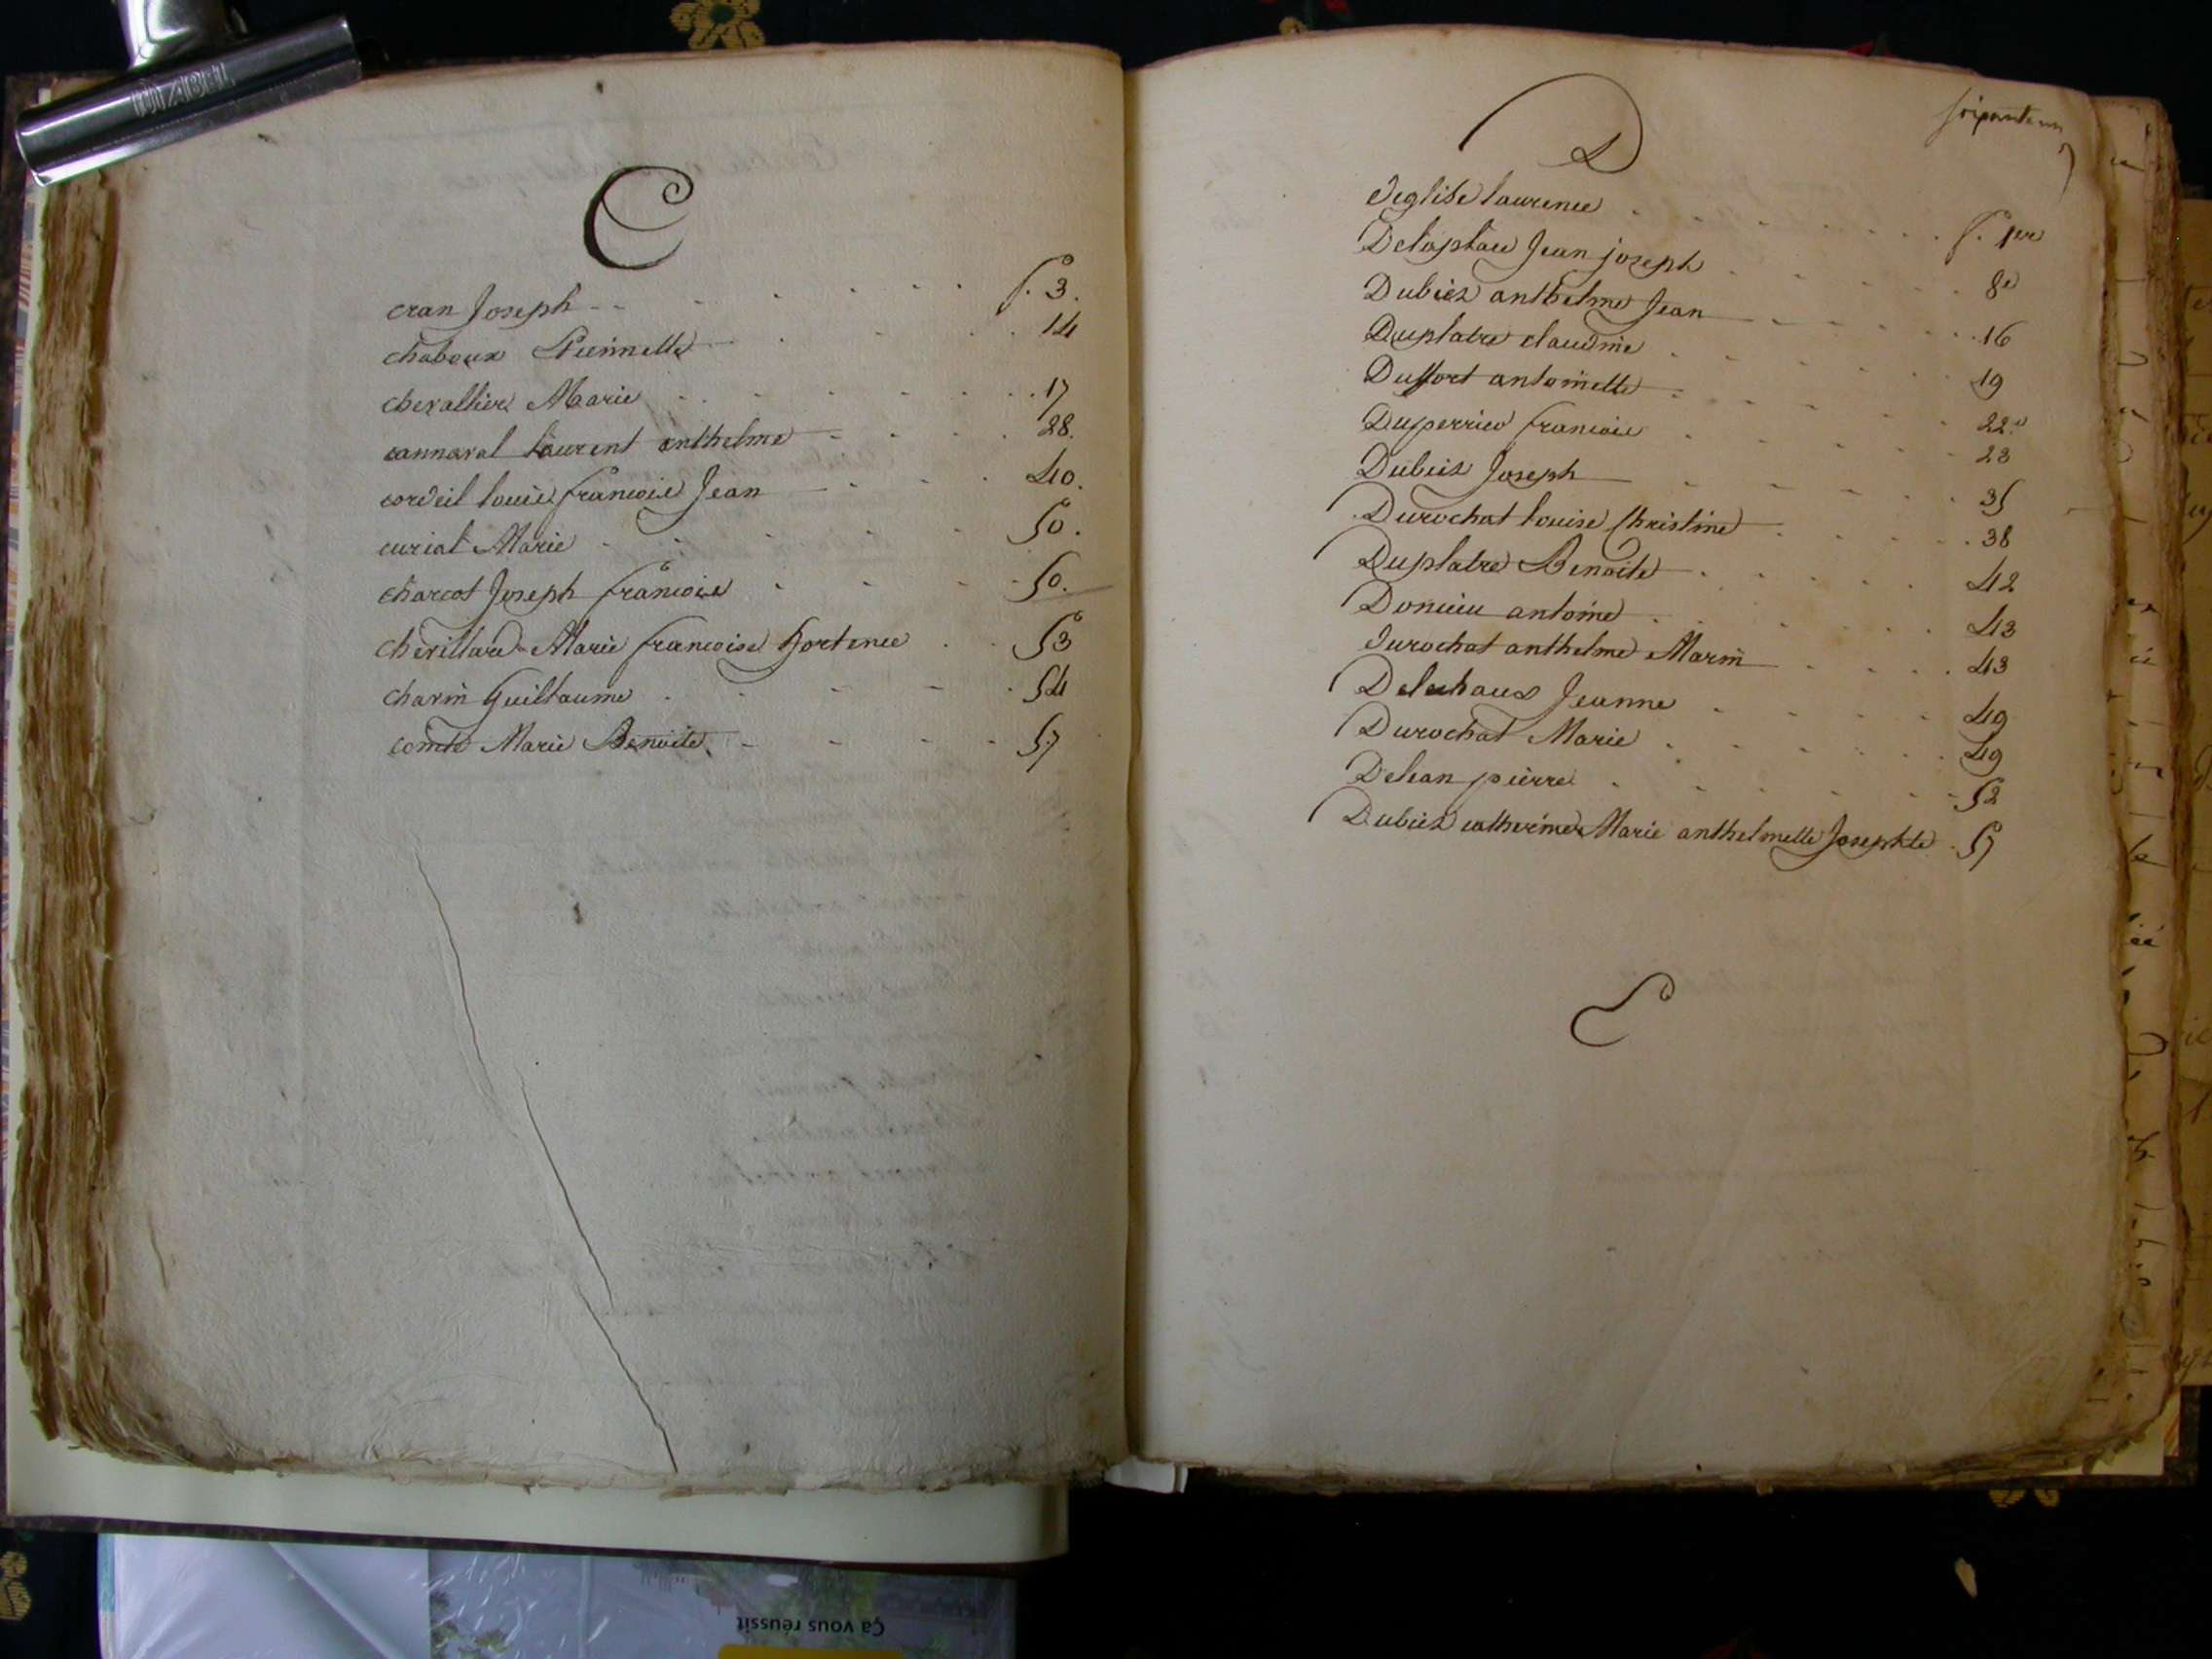 C
cran Joseph f.o 3.
chaboux Pierrinette 14
chevallier Marie 17
cannaval laurent anthelme 28.
cordeil louis francois Jean 40.
curial Marie 50.
charcot Joseph francois 50.
chevillard Marie francoise hortence 53
charin Guillaume 54
comte Marie Benoite 57
soixante un
D
Deglise laurence f. 1er
Delaplace Jean joseph 8e
Dubiez anthelme Jean 16
Duplatre claudine 19
Duffort antoinette 22.
Duperrier francois 23
Dubiez Joseph 35
Durochat louise Christine 38
Duplatre Benoite 42
Doncieu antoine 43
Durochat anthelme Marin 43
Delechaux Jeanne 49
Durochat Marie 49
Delean pierre 52
Dubiez catherine Marie anthelmette Josephte 57
E
DIABEL
Ça vous réussit